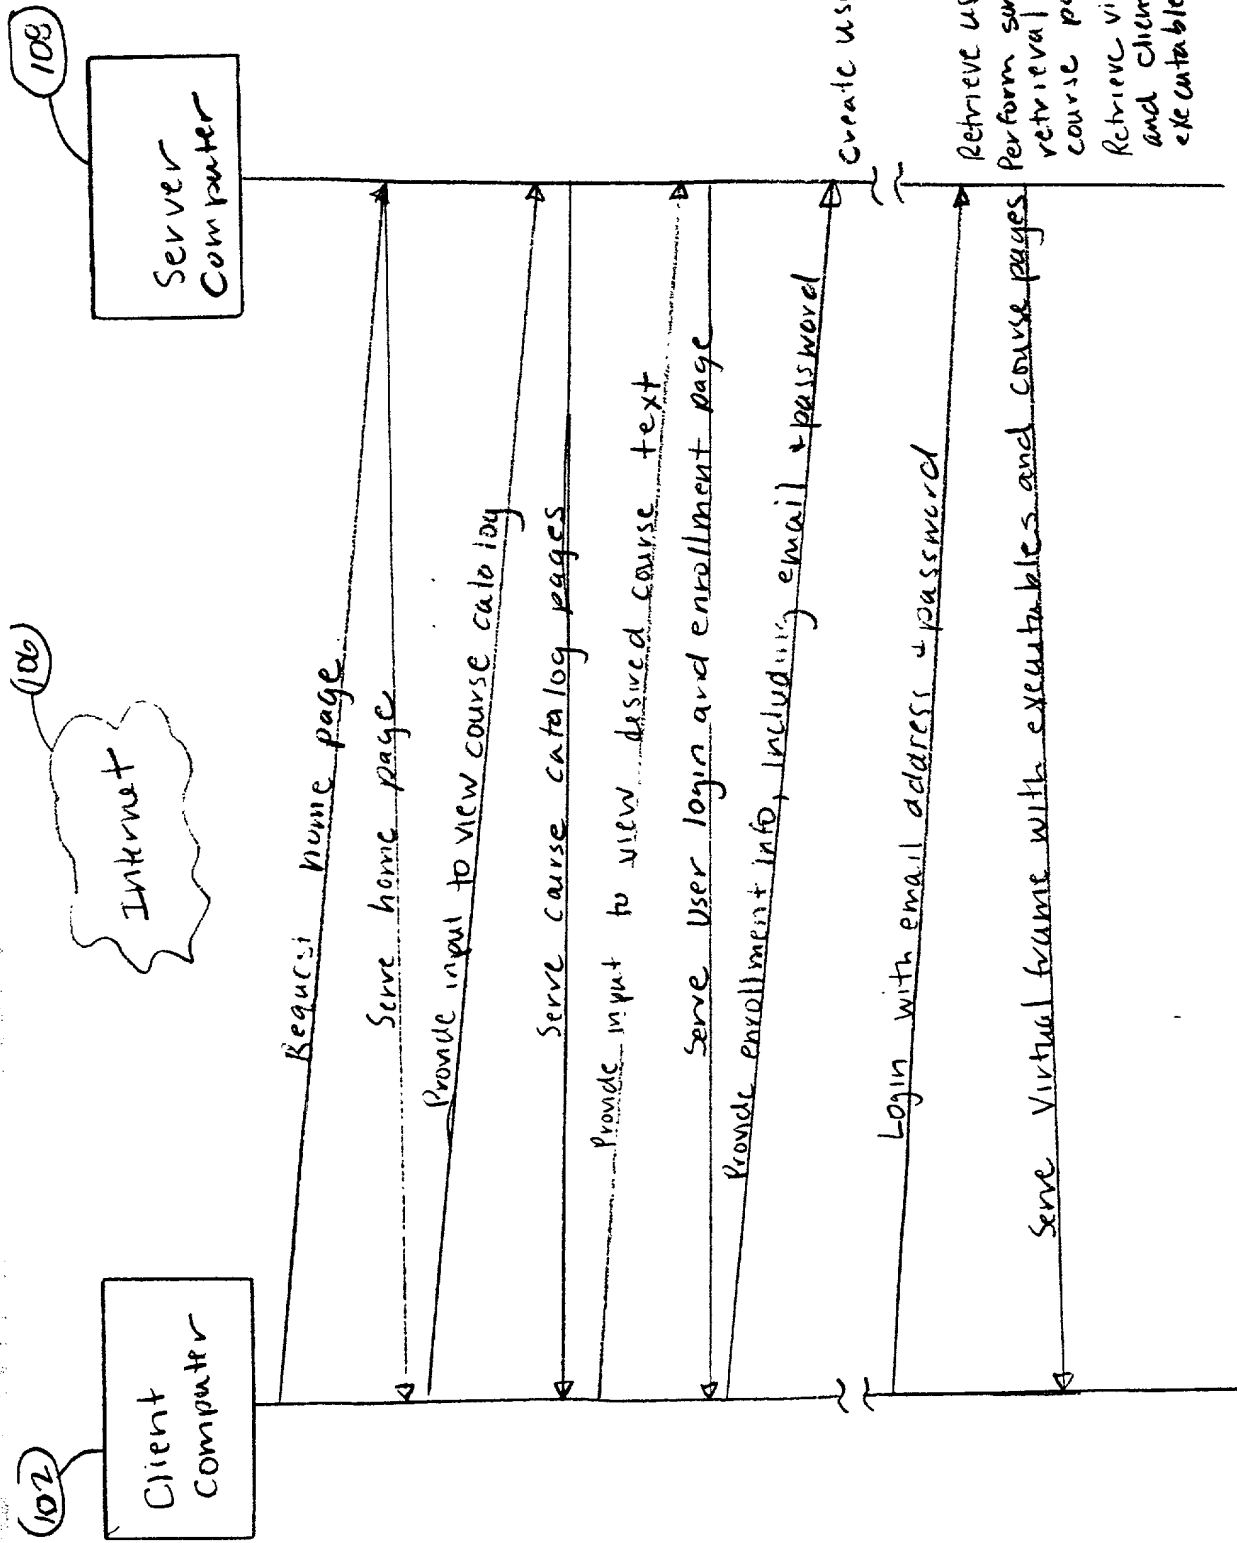 102
Client
Computer
106
Internet
108
Server
Computer
Request home page
Serve home page
Provide input to view course catalog
Serve course catalog pages
Provide input to view desired course text
Serve User login and enrollment page
Provide enrollment info, including email + password
Create us
Login with email address + password
Retrieve us
Perform su
retrieval
course pa
Retrieve vi
and clien
executable
Serve Virtual frame with executables and course pages